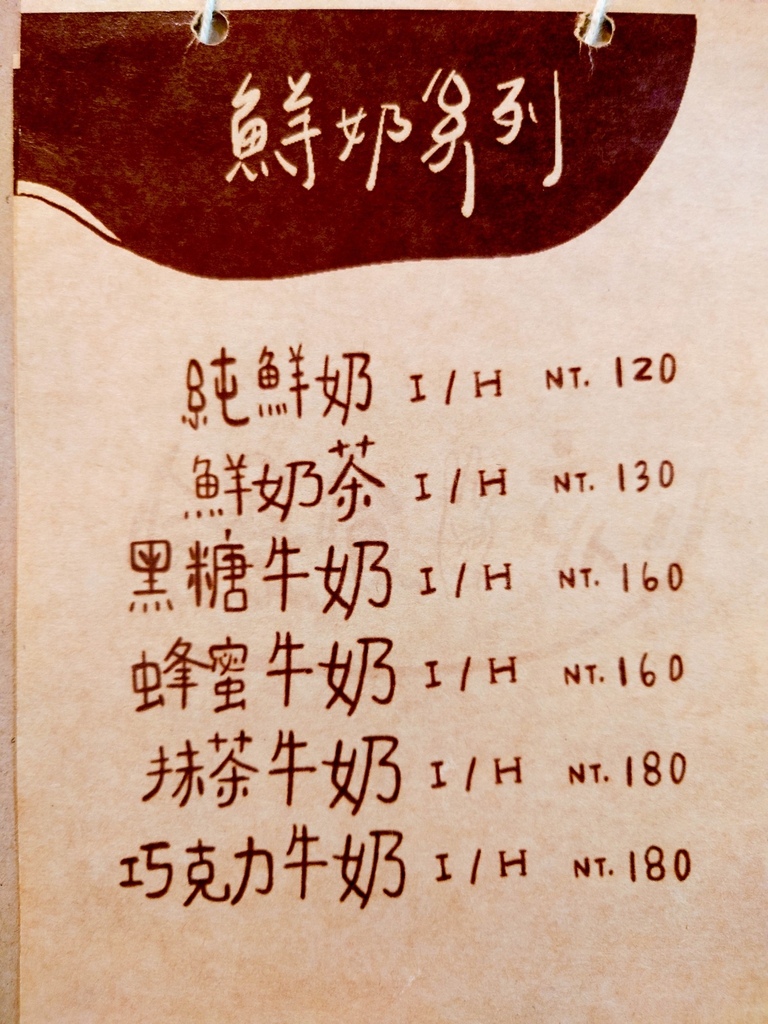 鮮奶系列
純鮮奶 I / H NT. 120
鮮奶茶 I / H NT. 130
黑糖牛奶 I / H NT. 160
蜂蜜牛奶 I / H NT. 160
抹茶牛奶 I / H NT. 180
巧克力牛奶 I / H NT. 180